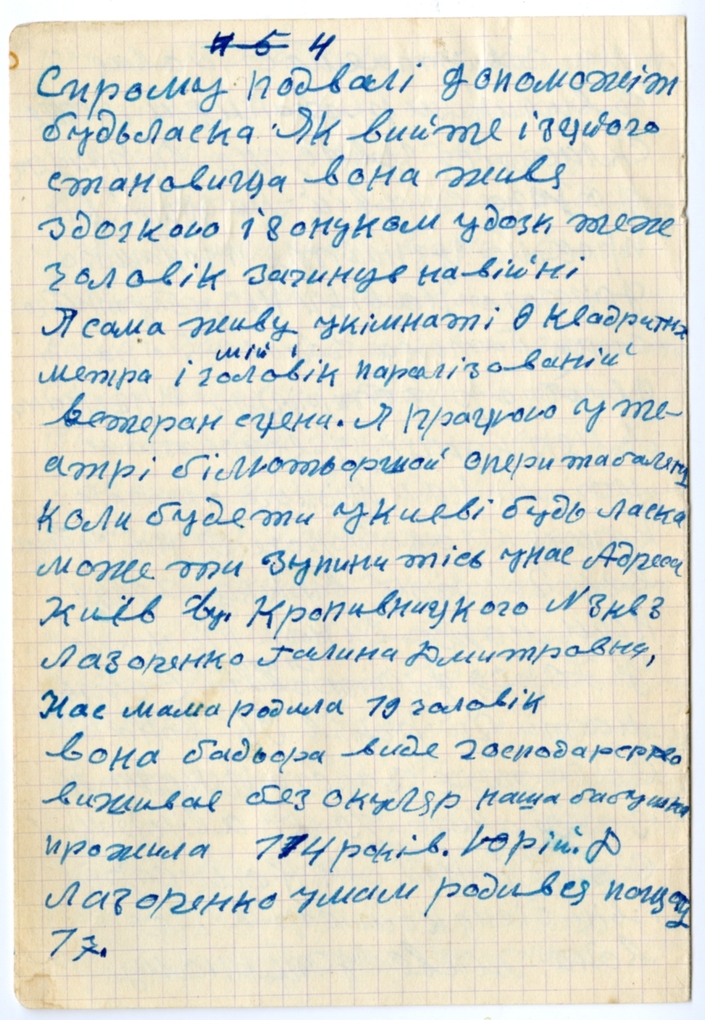 4
Сирому подвалі допоможіт
будьласка. Як вийте ізцього
становища вона живя
здочкою і вонуком удочк теже
чоловік зачинув навійні
Я сама живу укімнаті 8 квадритних
метра і мій чоловік паралізованій
ветеран сцени. Я працюю у те-
атрі опери табалету
коли будети укиеві будь ласка
може ти зупини тісь унас Адреса
Київ ву. Кропивницкого N 3 кв 3
Лазоренко Галина Дмитровна,
Нас мама родила 19 чоловік
вона бадьора виде господарство
вишивае без окуляр наша бабушка
прожила 114 років. Юрій. Д
Лазоренко умам родився почщоту
17.